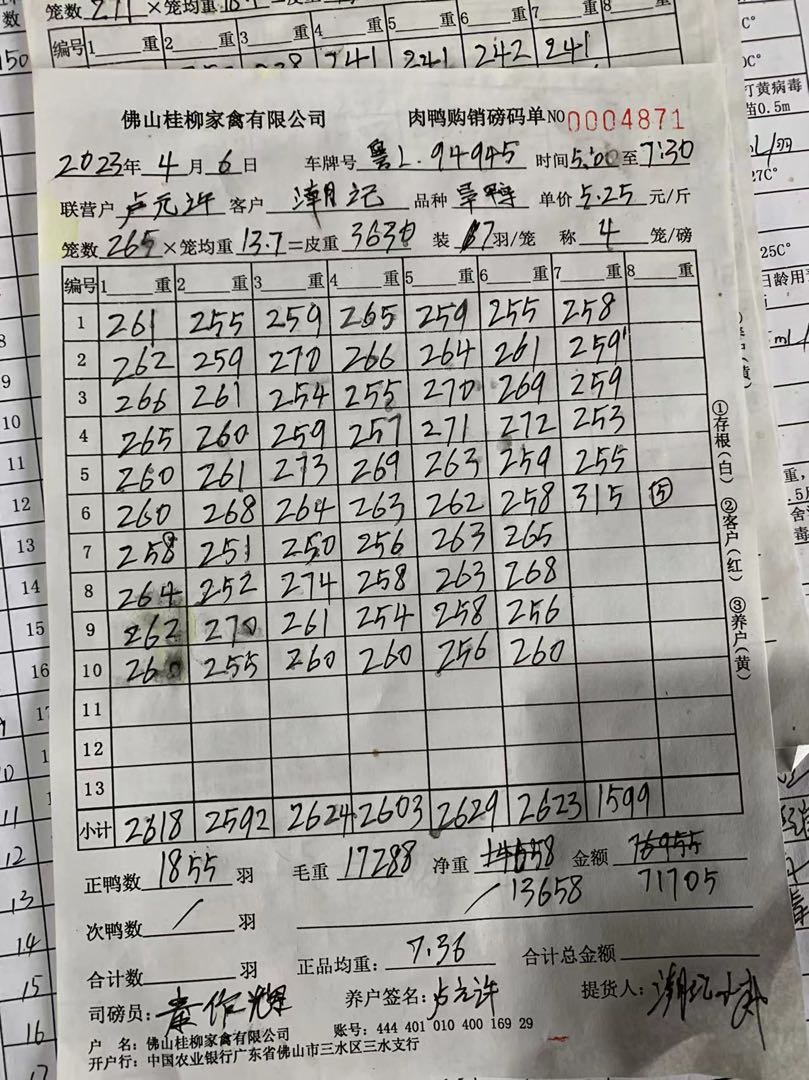 笼数 271 ×笼均重
编号 1 重 2 重 3 重 4 重 5 重 6 重 7 重 8
241 241 242 241
佛山桂柳家禽有限公司 肉鸭购销磅码单NO 0004871
2023年 4 月 6 日 车牌号 粤L.94945 时间5:00至7:30
联营户 卢元许 客户 潮记 品种 单价 5.25 元/斤
笼数 265 ×笼均重 13.7 =皮重 3630 装 7 羽/笼 称 4 笼/磅
编号 1 重 2 重 3 重 4 重 5 重 6 重 7 重 8 重
1 261 255 259 265 259 255 258
2 262 259 270 266 264 261 259
3 266 261 254 255 270 269 259
4 265 260 259 257 271 272 253
5 260 261 273 269 263 259 255
6 260 268 264 263 262 258 315 ⑤
7 258 251 250 256 263 265
8 264 252 274 258 263 268
9 262 270 261 254 258 256
10 260 255 260 260 256 260
11
12
13
小计 2618 2592 2624 2603 2629 2623 1599
正鸭数 1855 羽 毛重 17288 净重 金额
13658 71705
次鸭数 / 羽
合计数 羽 正品均重: 7.36 合计总金额
司磅员: 养户签名: 卢元许 提货人: 潮记
户 名: 佛山桂柳家禽有限公司 账号: 444 401 010 400 169 29
开户行: 中国农业银行广东省佛山市三水区三水支行
①存根(白) ②客户(红) ③养户(黄)